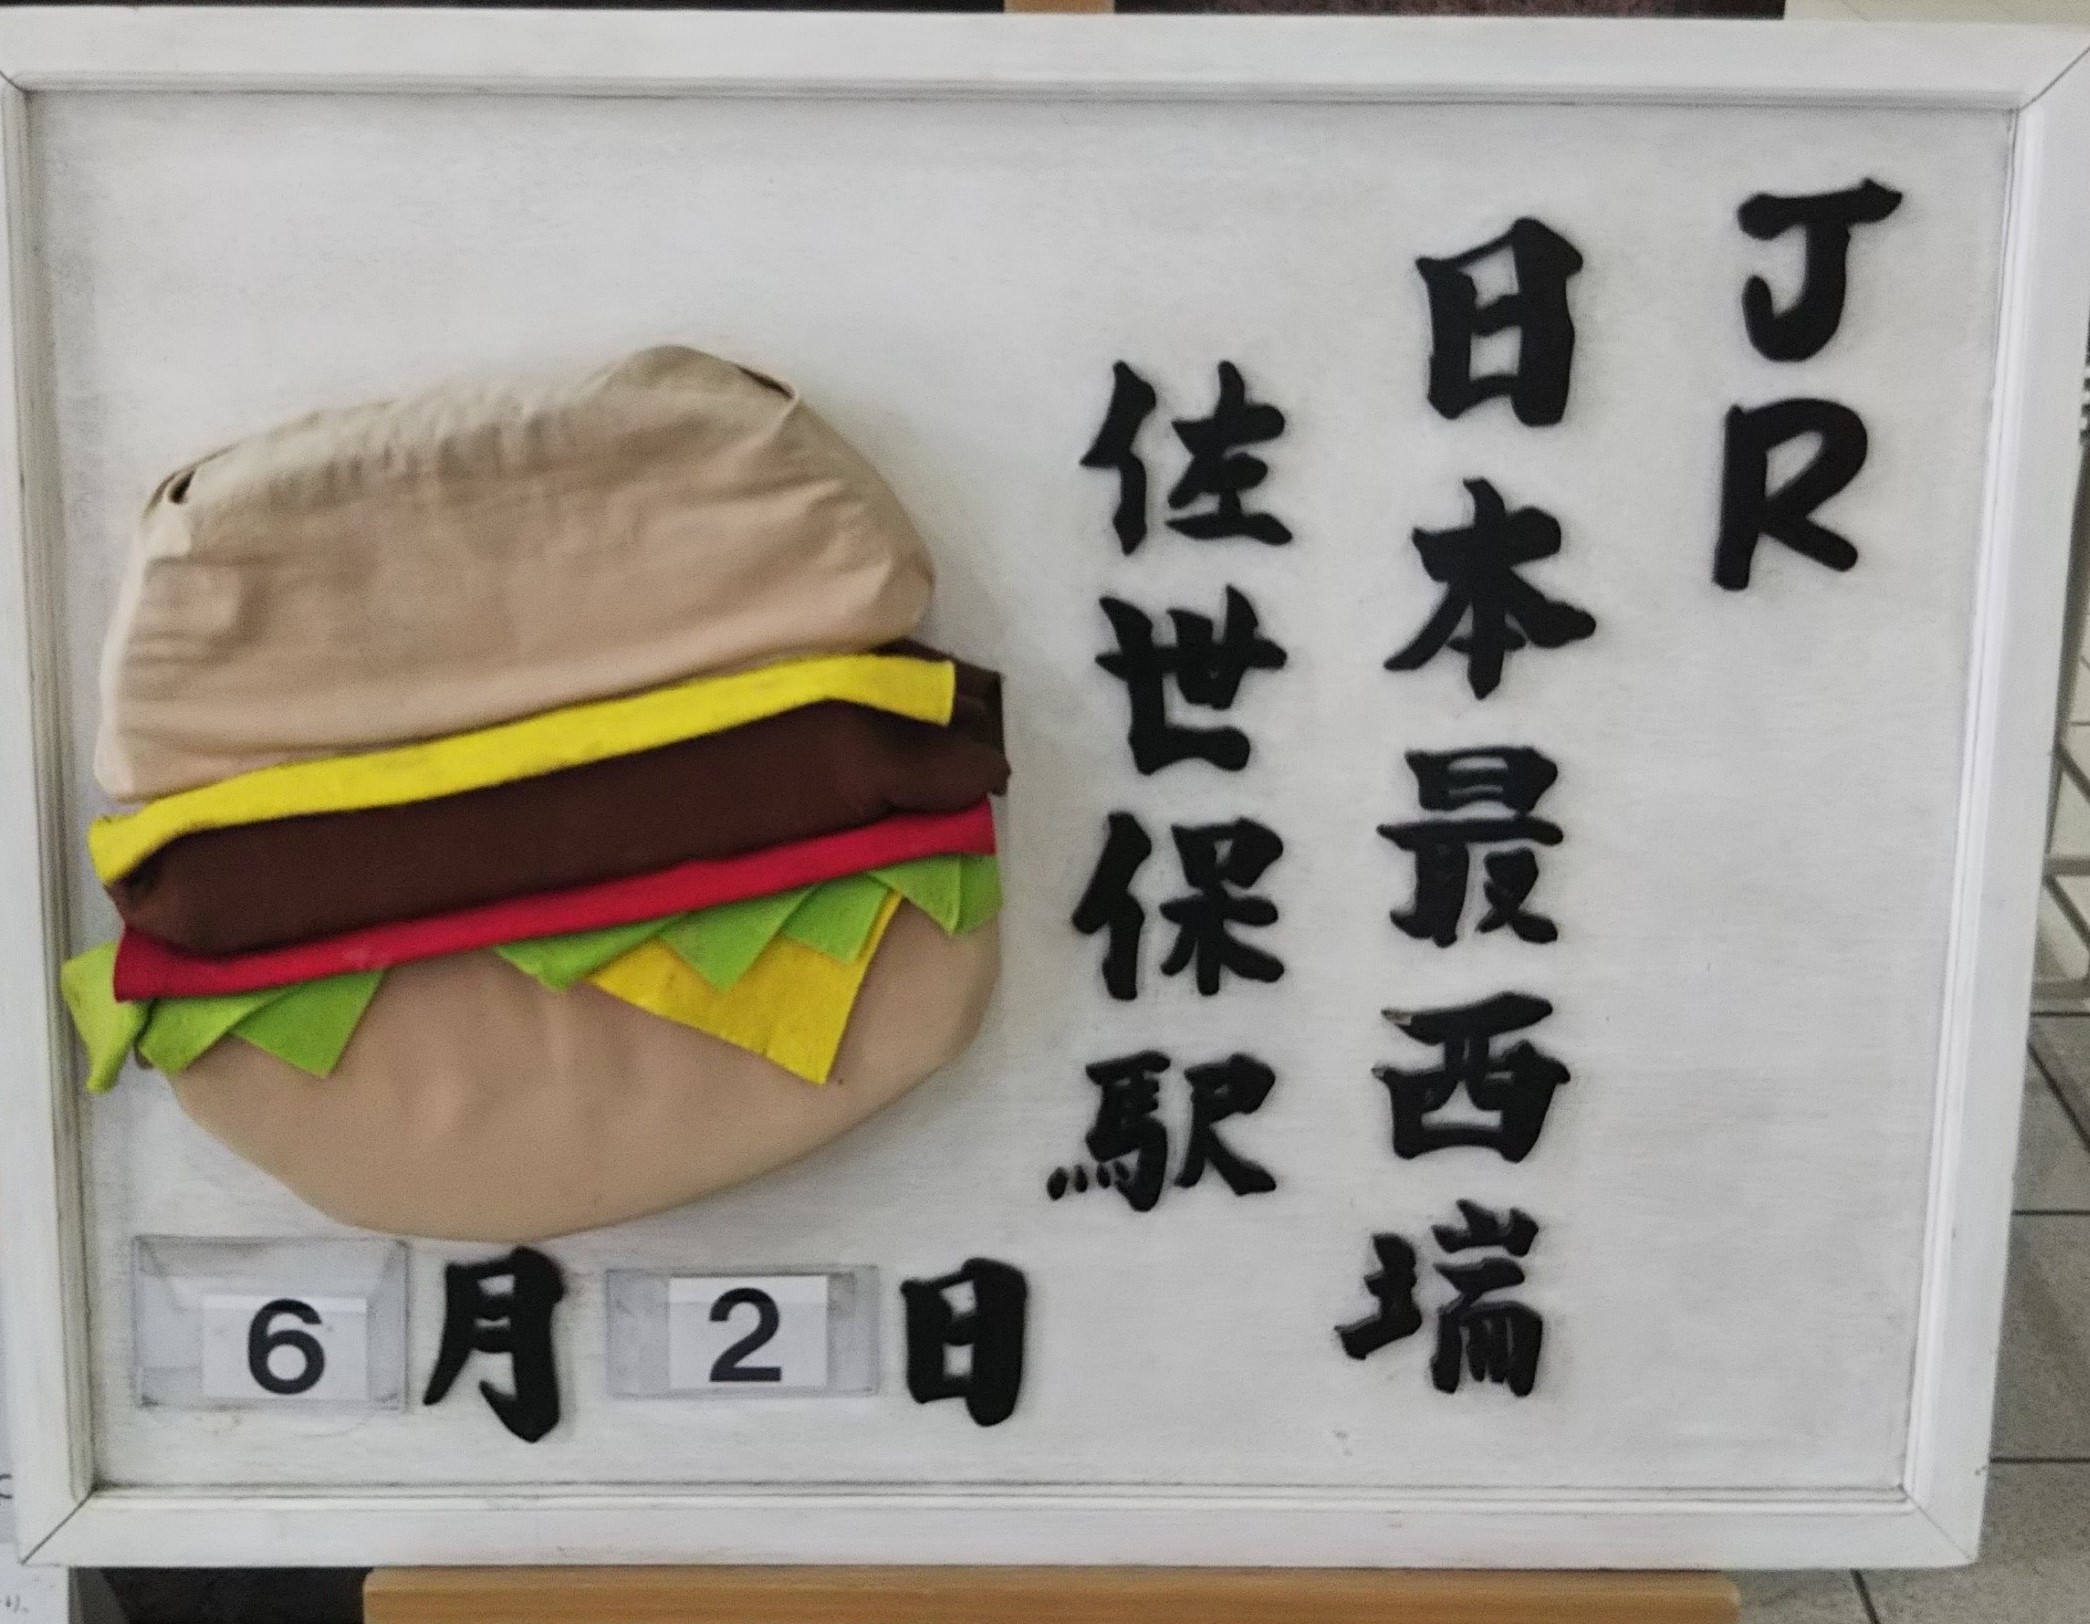 JR
日本最西端
佐世保駅
6月2日